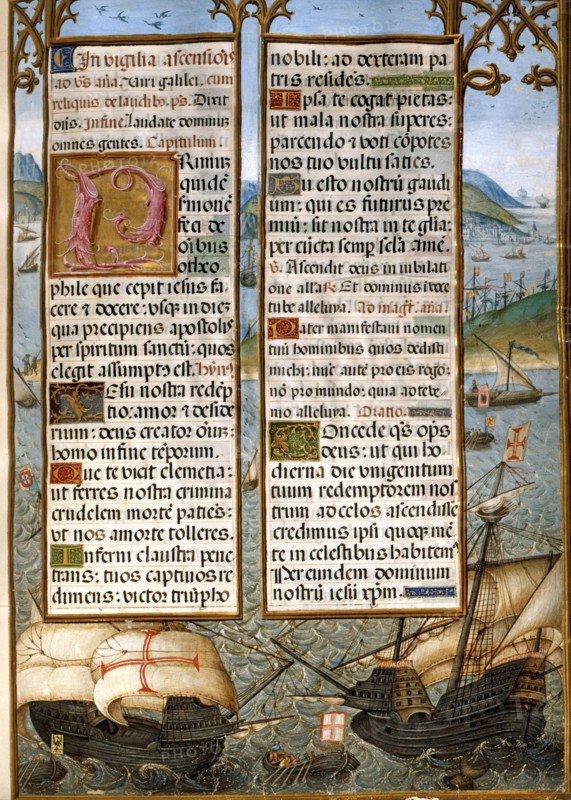 In vigilia ascensiois
ad vs aña. Viri galilei. cum
reliquis de laudibz. ps. Dixit
dñs. In fine. Laudate dominum
omnes gentes. Capitulum.
Rimum
quidē
smonē
feci de
oībus
o theo
phile que cepit iesus fa
cere ⁊ docere: usqz in diez
qua precipiens apostolis
per spiritum sanctū: quos
elegit assumptꝰ est. Hynꝰ
Esu nostra redēp
tio: amor ⁊ deside
rium: deus creator oīuz:
homo in fine tēporum.
Que te vicit clemētia:
ut ferres nostra crimina
crudelem mortē patiēs:
vt nos a morte tolleres.
Inferni claustra pene
trans: tuos captivos re
dimens: victor triūpho
nobili: ad dexteram pa
tris residēs.
Ipsa te cogat pietas:
ut mala nostra superes:
parcendo ⁊ voti cōpotes
nos tuo vultu saties.
Tu esto nostrū gaudi
um: qui es futurus pre
miū: sit nostra in te glīa:
per cūcta semp secla. amē.
v. Ascendit deus in iubilati
one alla. R. Et dominus i voce
tube alleluya. Ad magt. aña.
Pater manifestavi nomen
tuū hominibus quos dedisti
michi: nūc autē pro eis rogo:
nō pro mundo: quia ad te ve
nio alleluya. Oratio.
Concede qs ops
deus: ut qui ho
dierna die unigenitum
tuum redemptorem nos
trum ad celos ascendisse
credimus ipsi quoqz mē
te in celestibus habitemꝰ
Per eundem dominum
nostrū iesū xpm.